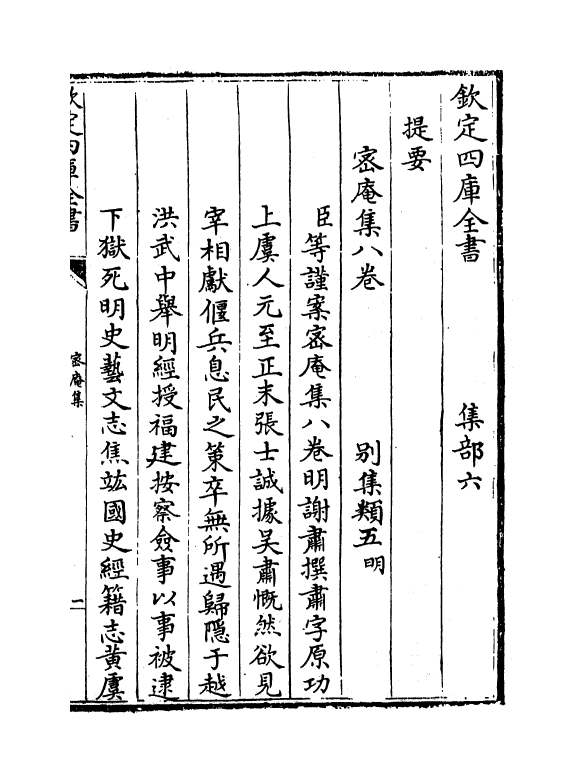 欽定四庫全書　集部六
提要
宻庵集八卷　别集類五明
臣等謹案宻庵集八卷明謝肅撰肅字原功
上虞人元至正末張士誠據吴肅慨然欲見
宰相獻偃兵息民之策卒無所遇歸隠于越
洪武中舉明經授福建按察僉事以事被逮
下獄死明史藝文志焦竑國史經籍志黄虞
欽定四庫全書
宻庵集